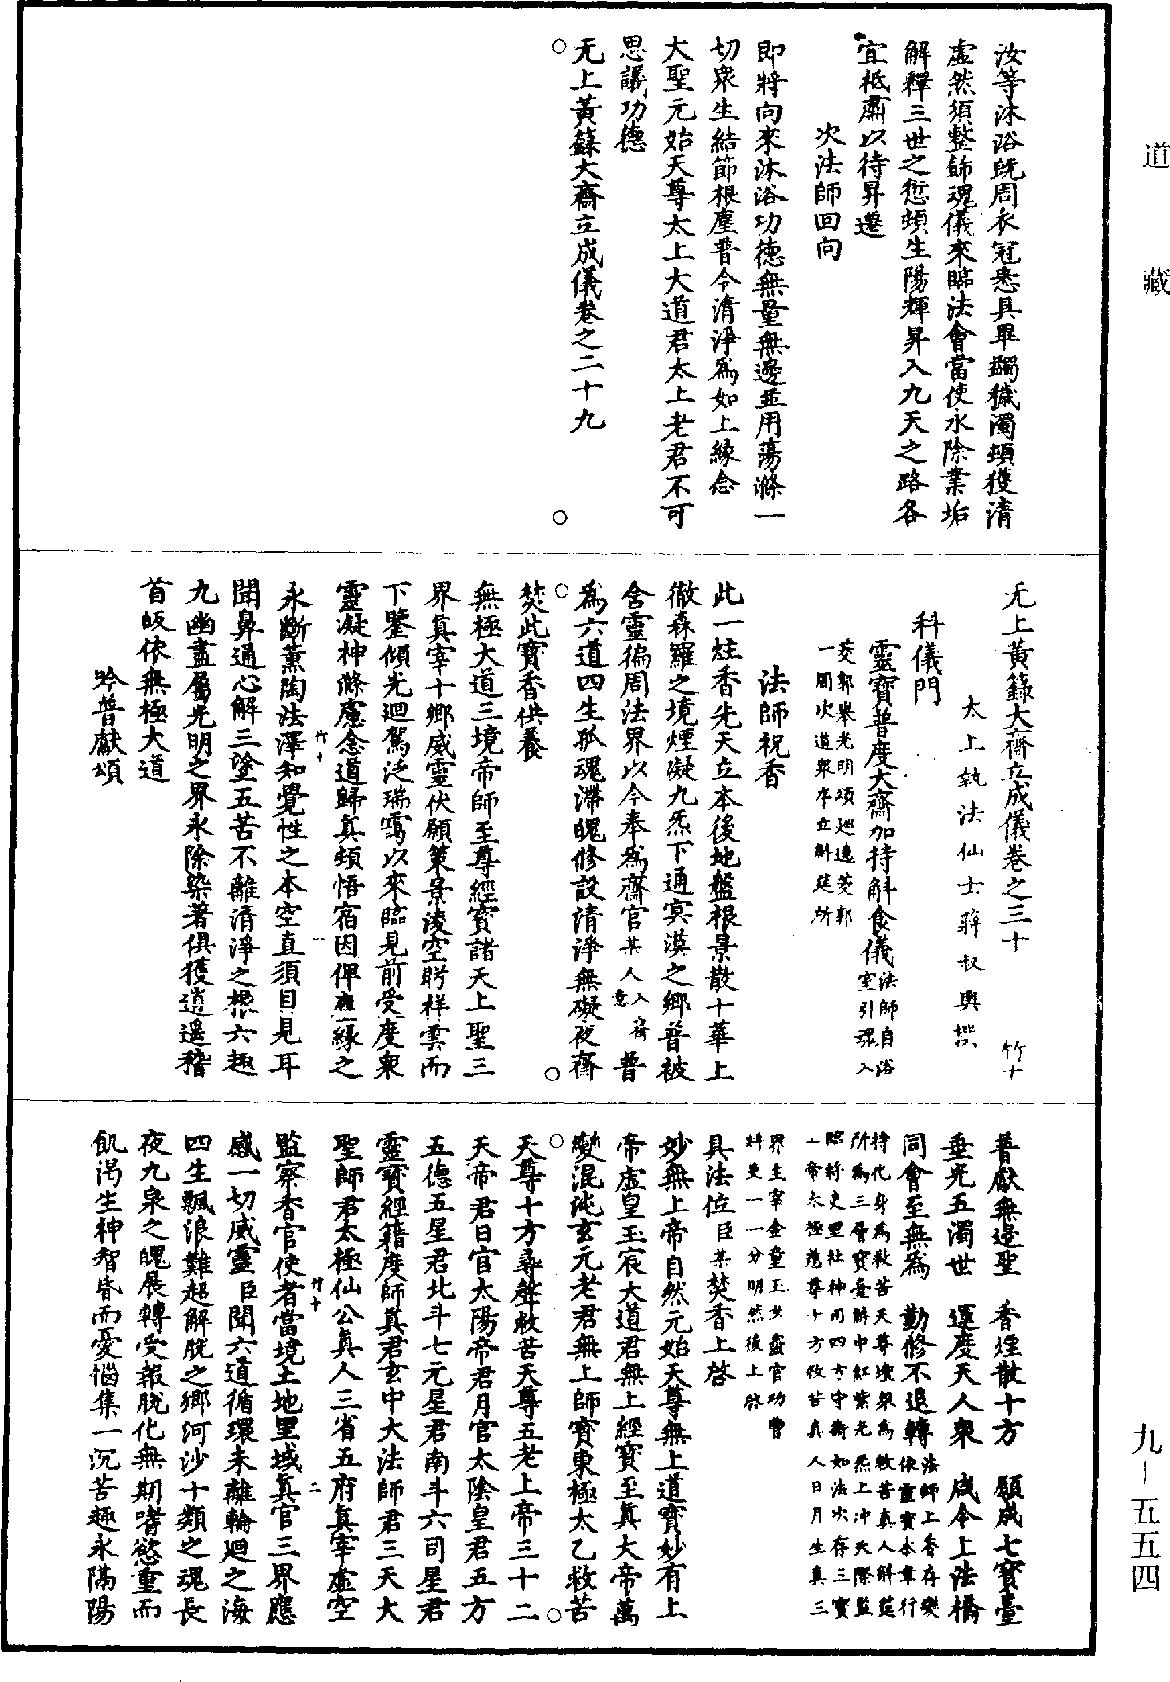 道藏
汝等沐浴既周衣冠悉具畢蠲穢濁頓獲清
虛然須整飾魂儀來臨法會當使永除業垢
解釋三世之愆頓生陽輝昇入九天之路各
宜祇肅以待昇遷
次法師回向
即將向來沐浴功德無量無邊並用蕩滌一
切衆生結節根塵普令清淨爲如上緣念
大聖元始天尊太上大道君太上老君不可
思議功德
无上黃籙大齋立成儀卷之二十九
无上黃籙大齋立成儀卷之三十 竹十
太上執法仙士蔣叔輿撰
科儀門
靈寶普度大齋加持斛食儀法師自浴室引魂入
茭郭舉光明頌廻遶茭郭
一匝次道衆序立斛筵所
法師祝香
此一炷香先天立本後地盤根景散十華上
徹森羅之境煙凝九炁下通冥漠之鄉普被
含靈徧周法界以今奉爲齋官某人入齋意普
爲六道四生孤魂滯魄修設清淨無礙夜齋
焚此寶香供養
無極大道三境帝師至尊經寶諸天上聖三
界真宰十鄉威靈伏願策景淩空眄祥雲而
下鑒傾光迴駕泛瑞靄以來臨見前受度衆
靈凝神滌慮念道歸真頓悟宿因俾 緣之
竹十 一
永斷薰陶法澤知覺性之本空直須目見耳
聞鼻通心解三塗五苦不離清淨之 六趣
九幽盡屬光明之界永除染著俱獲逍遥稽
首皈依無極大道
吟普獻頌
普獻無邊聖 香煙散十方 願成七寶臺
垂光五濁世 運度天人衆 咸令上法橋
同會至無爲 勤修不退轉法師上香存變依靈寶本章行
持化身爲救苦天尊 爲救苦真人斛筵
所爲三層寶臺斛中紅紫光炁上冲天際監
臨將吏里社神司四方守衛如法次存三寶
十帝太極慈尊十方救苦真人日月生真三
界主宰金童玉女靈官功曹
斛 一一分明然後上啓
具法位臣某焚香上啓
妙無上帝自然元始天尊無上道寶妙有上
帝虛皇玉宸大道君無上經寶至真大帝萬
變混沌玄元老君無上師寶東極太乙救苦
天尊十方尋聲救苦天尊五老上帝三十二
天帝君日官太陽帝君月官太陰皇君五方
五德五星君北斗七元星君南斗六司星君
靈寶經籍度師真君玄中大法師君三天大
聖師君太極仙公真人三省五府真宰虛空
竹十 二
監察香官使者當境土地里域真官三界應
感一切威靈臣聞六道循環未離輪廻之海
四生飄浪難超解脫之鄉河沙十類之魂長
夜九泉之魄展轉受報脫化無期嗜慾重而
飢渴生神智昏而憂惱集一沉苦趣永隔陽
九—五五四